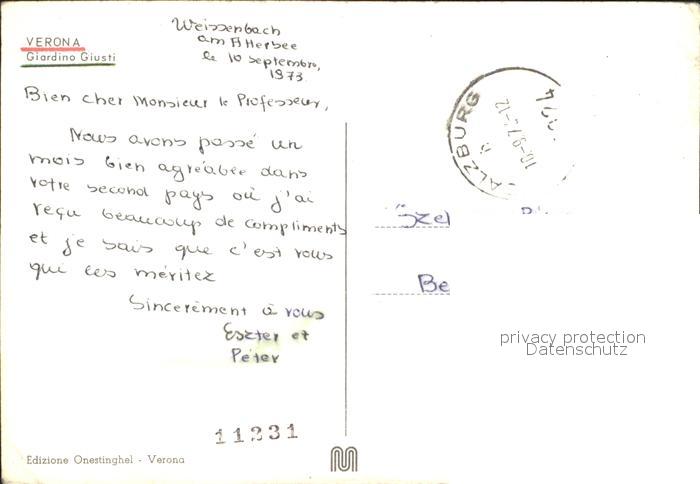 VERONA
Giardino Giusti
Weissenbach
am Attersee
le 10 septembre,
1973
Bien cher Monsieur le Professeur,
Nous avons passé un
mois bien agréable dans
votre second pays où j'ai
reçu beaucoup de compliments
et je sais que c'est vous
qui les méritez
Sincerèment à vous
Eszter et
Péter
11231
Edizione Onestinghel - Verona
ALZBURG
Szel
Be
privacy protection
Datenschutz